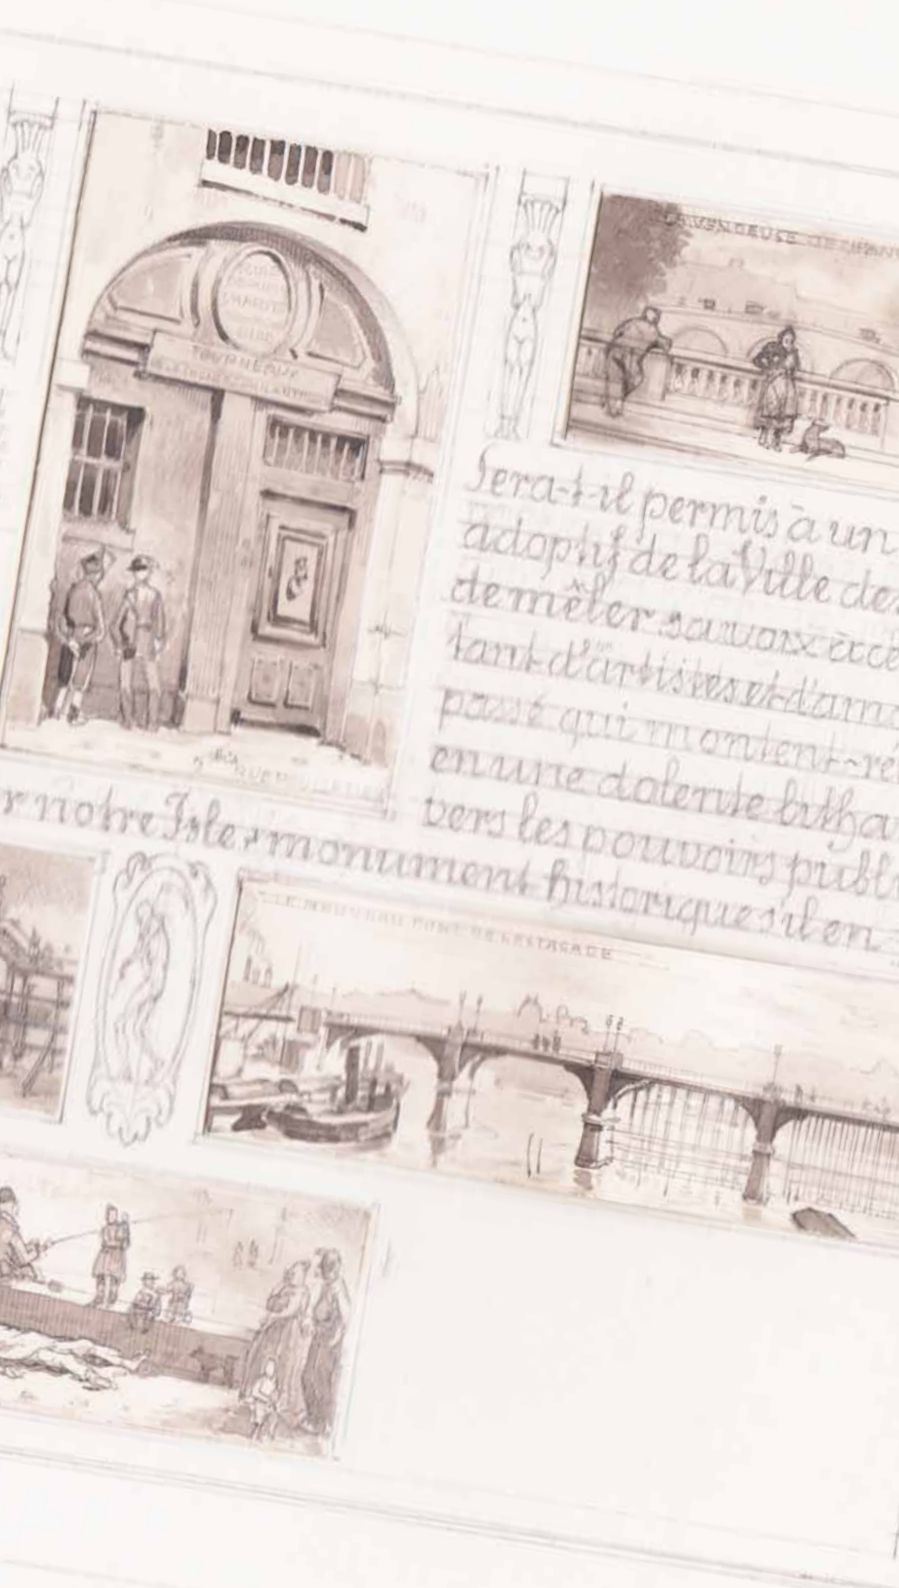 LA VENDEUSE DE CHAN
TOURNEAUX
Sera-t-il permis à un
adoptif de la Ville de
de mêler sa voix à ce
tant d'artistes et d'am
passé qui montent-re
en une dolente litha
vers les pouvoirs publi
r notre Isle, monument historique s'il en
LE NOUVEAU PONT DE L'ESTACADE